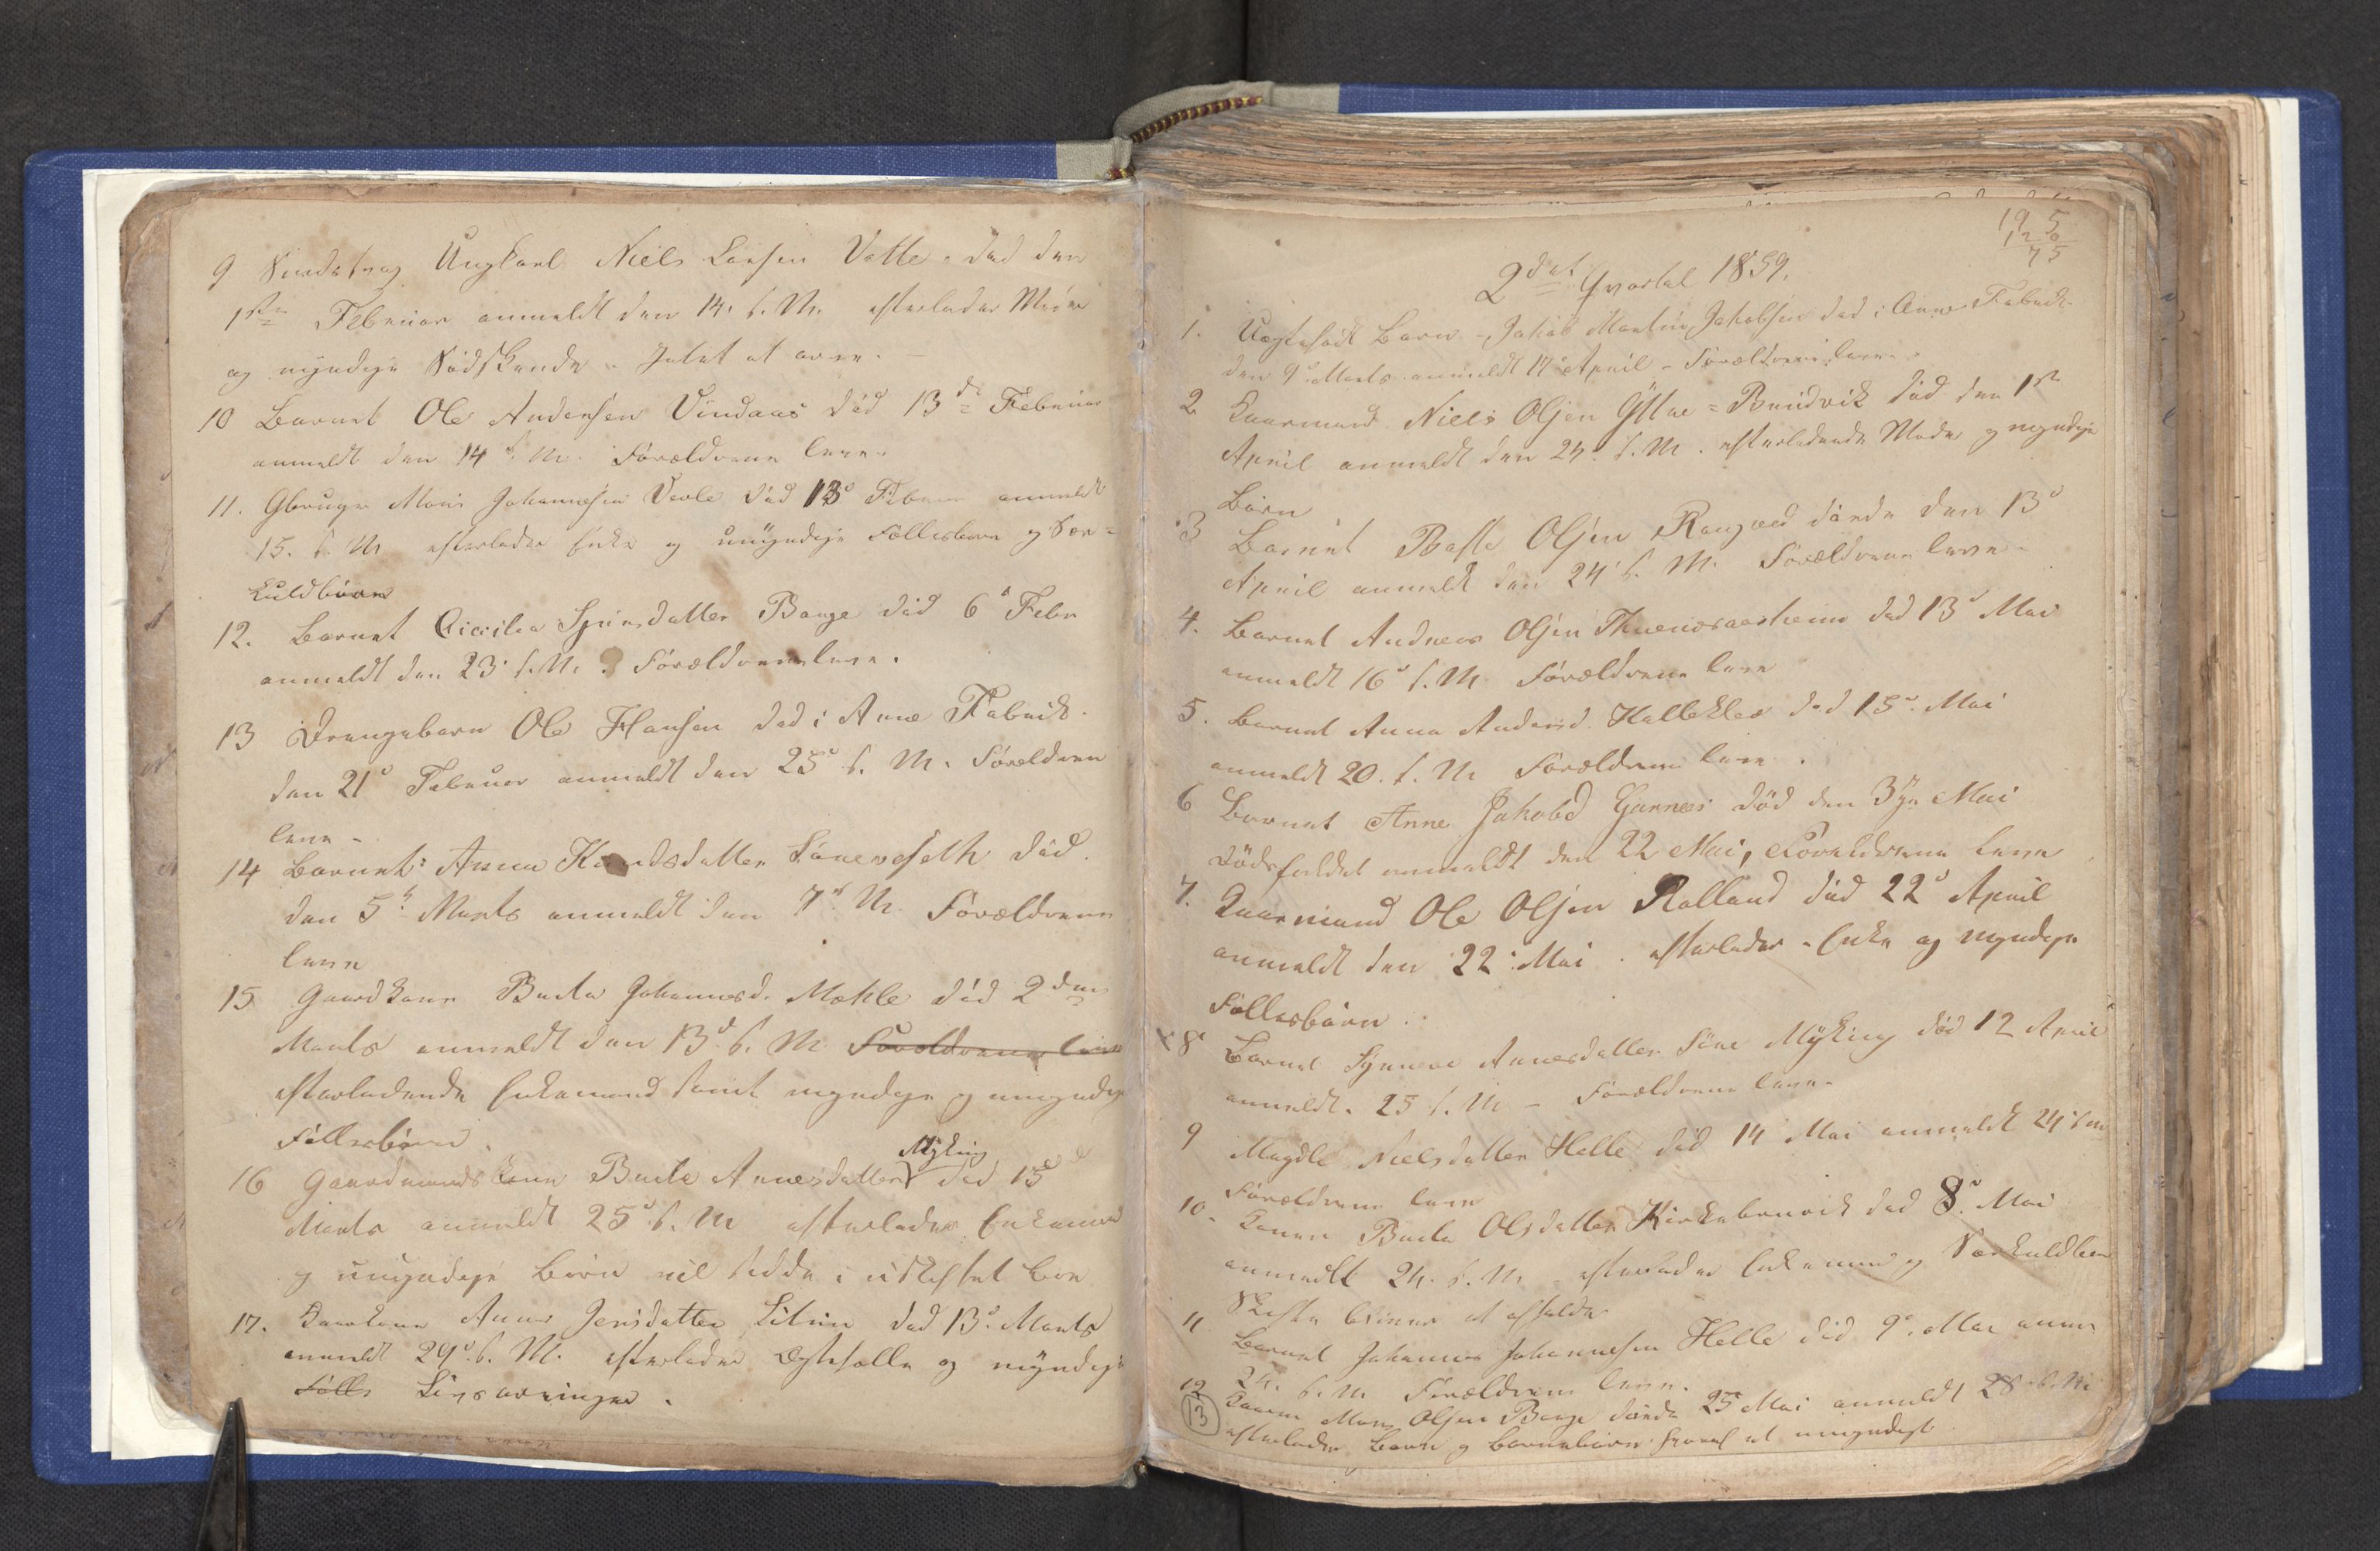 9 Ungkarl Niels Larsen Vatle. død den
1ste Februar anmeldt den 14. s. M. efterlader Moder
og myndige Södskende - Intet at arve.
10 Barnet Ole Andersen Vindaas död 13de Februar
anmeldt den 14 s. M. Forældrene leve.
11. Gbruger Mons Johannesen Vevle död 13d Februar anmeldt
15. s. M efterlader Enke og umyndige Fællesbörn og Sær=
kuldbörn
12. Barnet Cicilia Datter Bange död 6d Febr
anmeldt den 23 s. M. Forældrene leve.
13 Drengebarn Ole Hansen död i Arne Fabrik.
den 21d Februar anmeldt den 25d s. M. Forældrene
leve -
14 Barnet: Anna död.
den 5t Marts anmeldt den 7d M. Forældrene
leve
15 Gaardkone Brita Johannesd. Mæhle död 2den
Marts anmeldt den 13d s. M. Forældrene leve
efterladende Enkemand samt myndige og umyndige
Fællesbörn.
Myking
16 Gaardmandskone Brita Annesdatter død 15d
Marts anmeldt 25d s. M efterlader Enkemand
og umyndige Börn vil sidde i uskiftet Boe
17. Kaarkone Anna Jensdatter död 13d Marts
anmeldt 29d s. M. efterlader Ægtefælle og myndige
Fælles Livsarvinger.
195
120
75
2det Qvartal 1859.
1. Uægtefödt Barn - Jakob Martin Jakobsen död i Arne Fabrik
den 9d Marts anmeldt 14d April - Forældrene leve.
2 Kaarmand Niels Olsen Yttre=Bruvik död den 1ste
April anmeldt den 24. s. M. efterladende Moder og myndige
Börn
3 Barnet Olsen døde den 13d
April anmeldt den 24 s. M. Forældrene leve -
4. Barnet Andreas Olsen död 13d Mai
anmeldt 16d s. M. Forældrene leve
5. Barnet Anna Andersd. Hallekleo död 15d Mai
anmeldt 20. s. M Forældrene leve.
6 Barnet Anne Jakobd Garnæs död den 3je Mai
Dödsfaldet anmeldt den 22 Mai, Forældrene leve
7. Kaarmand Ole Olsen Rolland död 22d April
anmeldt den 22d Mai. efterlader - Enke og myndige
Fællesbörn.
8 Barnet Synneve Annesdatter Myking död 12 April
anmeldt. 25 s. M - Forældrene leve.
9 Magdle Nielsdatter Helle död 14 Mai anmeldt 24 s m
Forældrene leve
10. Konen Brita Olsdatter Kirkebruvik død 8d Mai
anmeldt 24. s. M - efterlader Enkemand og Særkuldbörn
Skifte bliver at afholde
11 Barnet Johannes Johannesen Helle död 9d. Mai anm
24. s. M Forældrene leve.
12 Mons Olsen Bange døde 25 Mai anmeldt 28 s. M
efterlader Börn og Barnebörn hvoraf et umyndigt
13